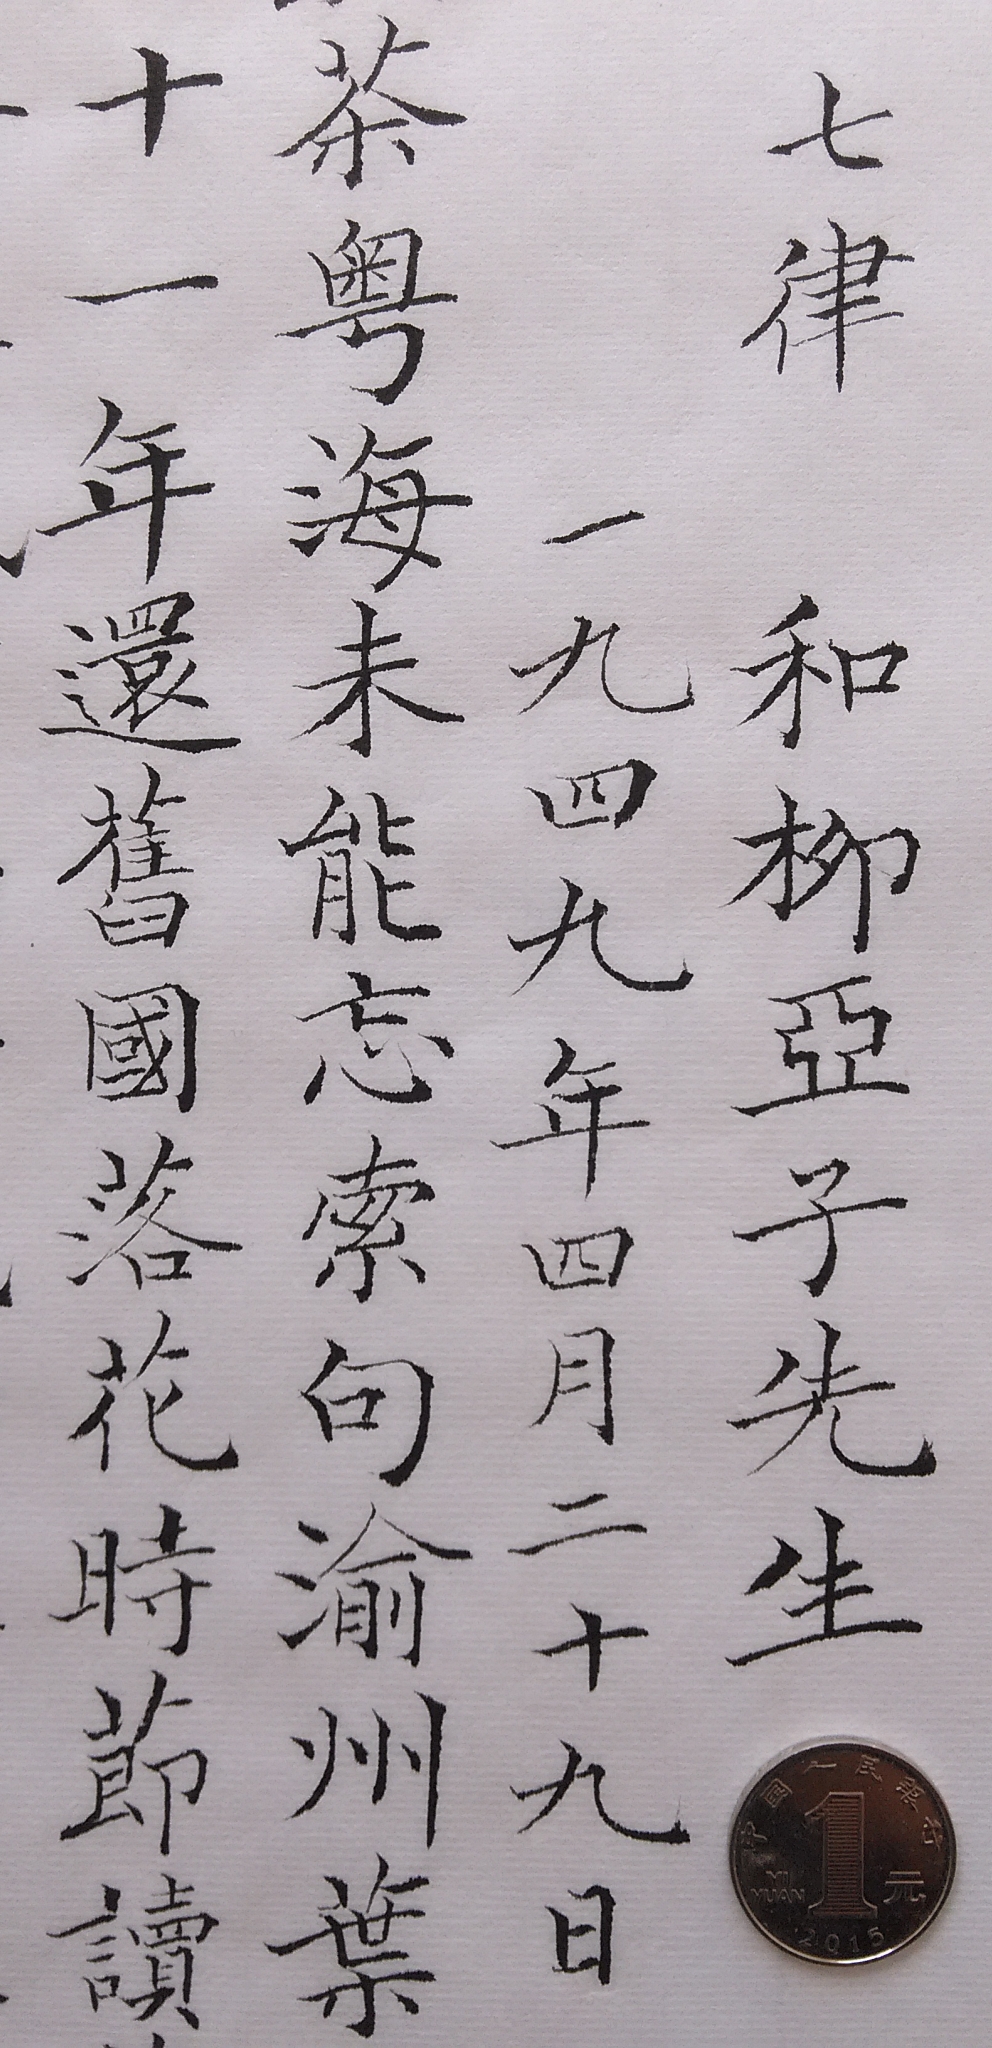 七律 和柳亞子先生
一九四九年四月二十九日
茶粤海未能忘索句渝州葉
十一年還舊國落花時節讀
中国人民银行
1
YI YUAN
元
2015